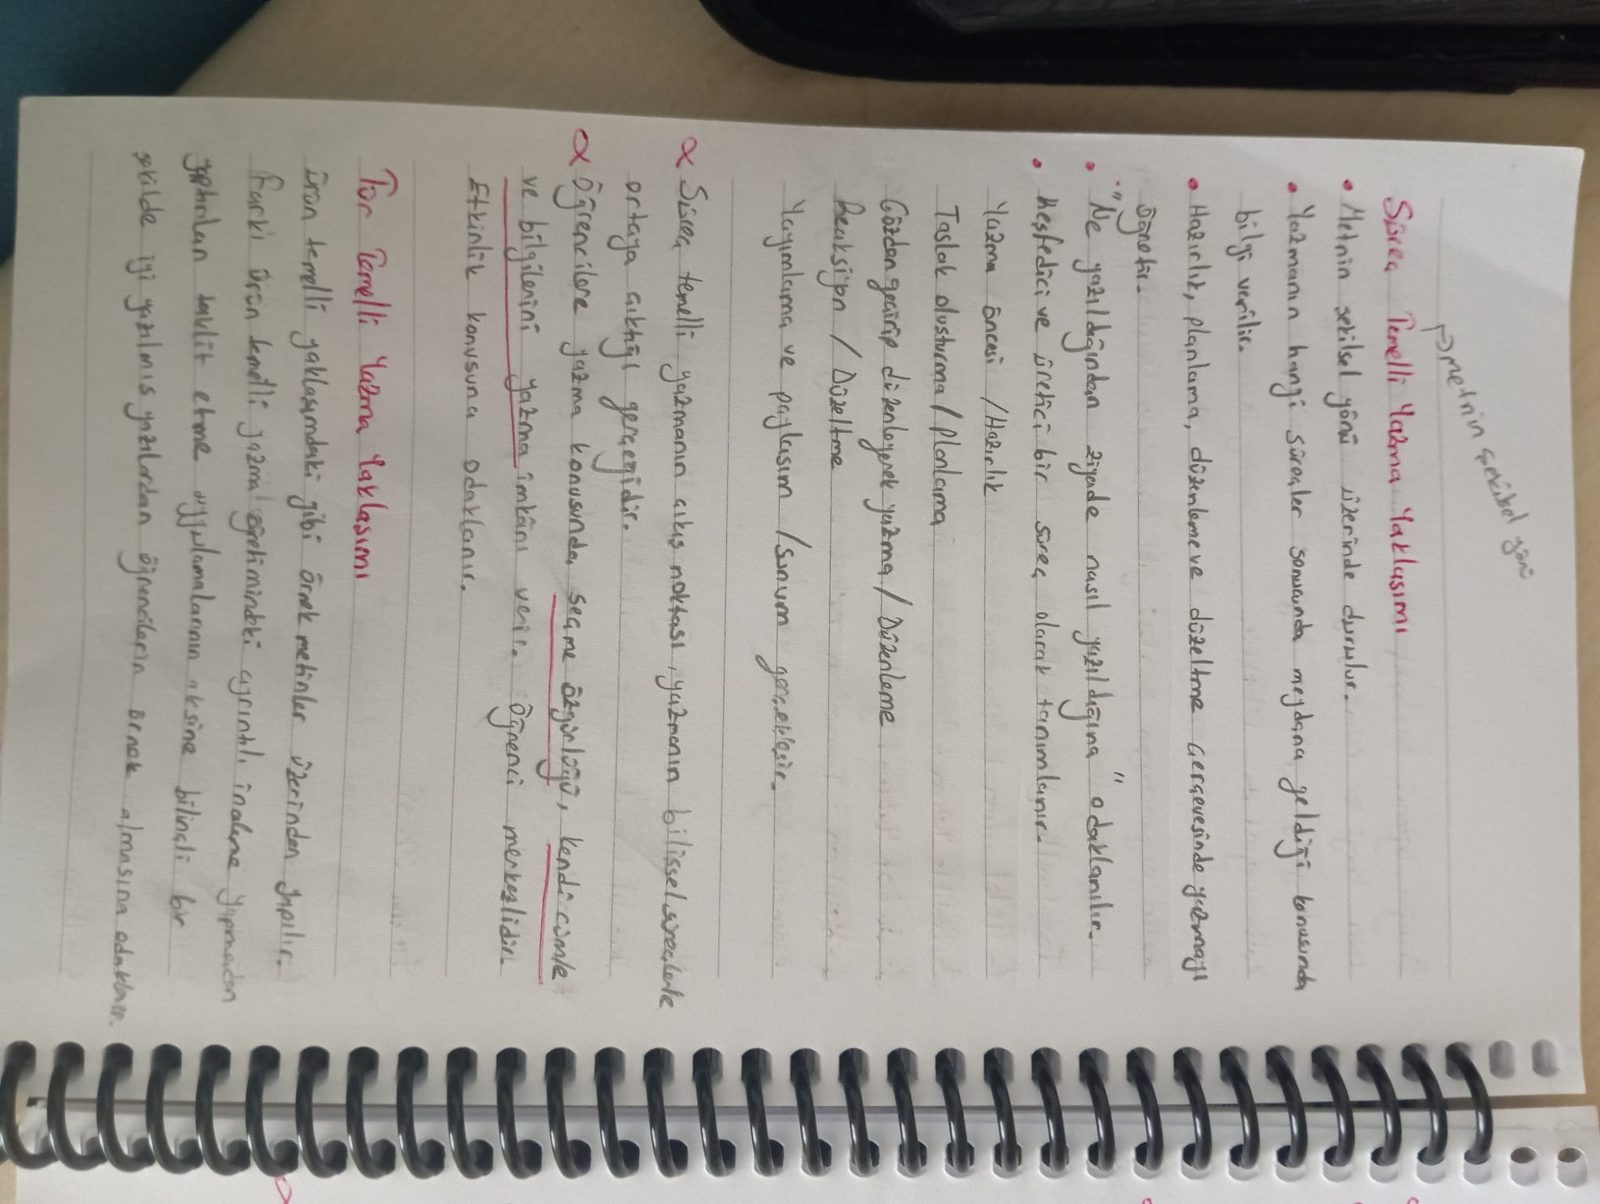 → metnin şekilsel yönü
Süreç Temelli Yazma Yaklaşımı
• Metnin şekilsel yönü üzerinde durulur.
• Yazmanın hangi süreçler sonucunda meydana geldiği konusunda
bilgi verilir.
• Hazırlık, planlama, düzenleme ve düzeltme çerçevesinde yazmayı
öğretir.
• "Ne yazıldığından ziyade nasıl yazıldığına" odaklanılır.
• Keşfedici ve üretici bir süreç olarak tanımlanır.
Yazma öncesi / Hazırlık
Taslak oluşturma / Planlama
Gözden geçirip düzenleyerek yazma / Düzenleme
Reaksiyon / Düzeltme
Yayımlama ve paylaşım / sunum gerçekleşir.
α Süreç temelli yazmanın çıkış noktası, yazmanın bilişsel süreçlerle
ortaya çıktığı gerçeğidir.
α Öğrencilere yazma konusunda seçme özgürlüğü, kendi cümle
ve bilgilerini yazma imkânı verir. Öğrenci merkezlidir.
Etkinlik konusuna odaklanır.
Tür Temelli Yazma Yaklaşımı
Ürün temelli yaklaşımdaki gibi örnek metinler üzerinden yapılır.
Farkı ürün temelli yazma öğretimindeki ayrıntılı inceleme yapmadan
yaptırılan taklit etme uygulamalarının aksine bilinçli bir
şekilde iyi yazılmış yazılardan öğrencilerin örnek almasına odaklanır.